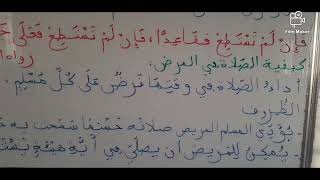 فَإِنْ لَمْ تَسْتَطِعْ فَقَاعِدًا، فَإِنْ لَمْ تَسْتَطِعْ فَعَلَى
رواه
كيفية الصلاة في المرض:
أداء الصّلاة في وقتها فرض على كلّ مسلم
الظّروف
- يؤدّي المسلم المريض صلاته حسبما سمحت به
- يمكن للمريض أن يصلّي في أيّة هيئة
Film Maker